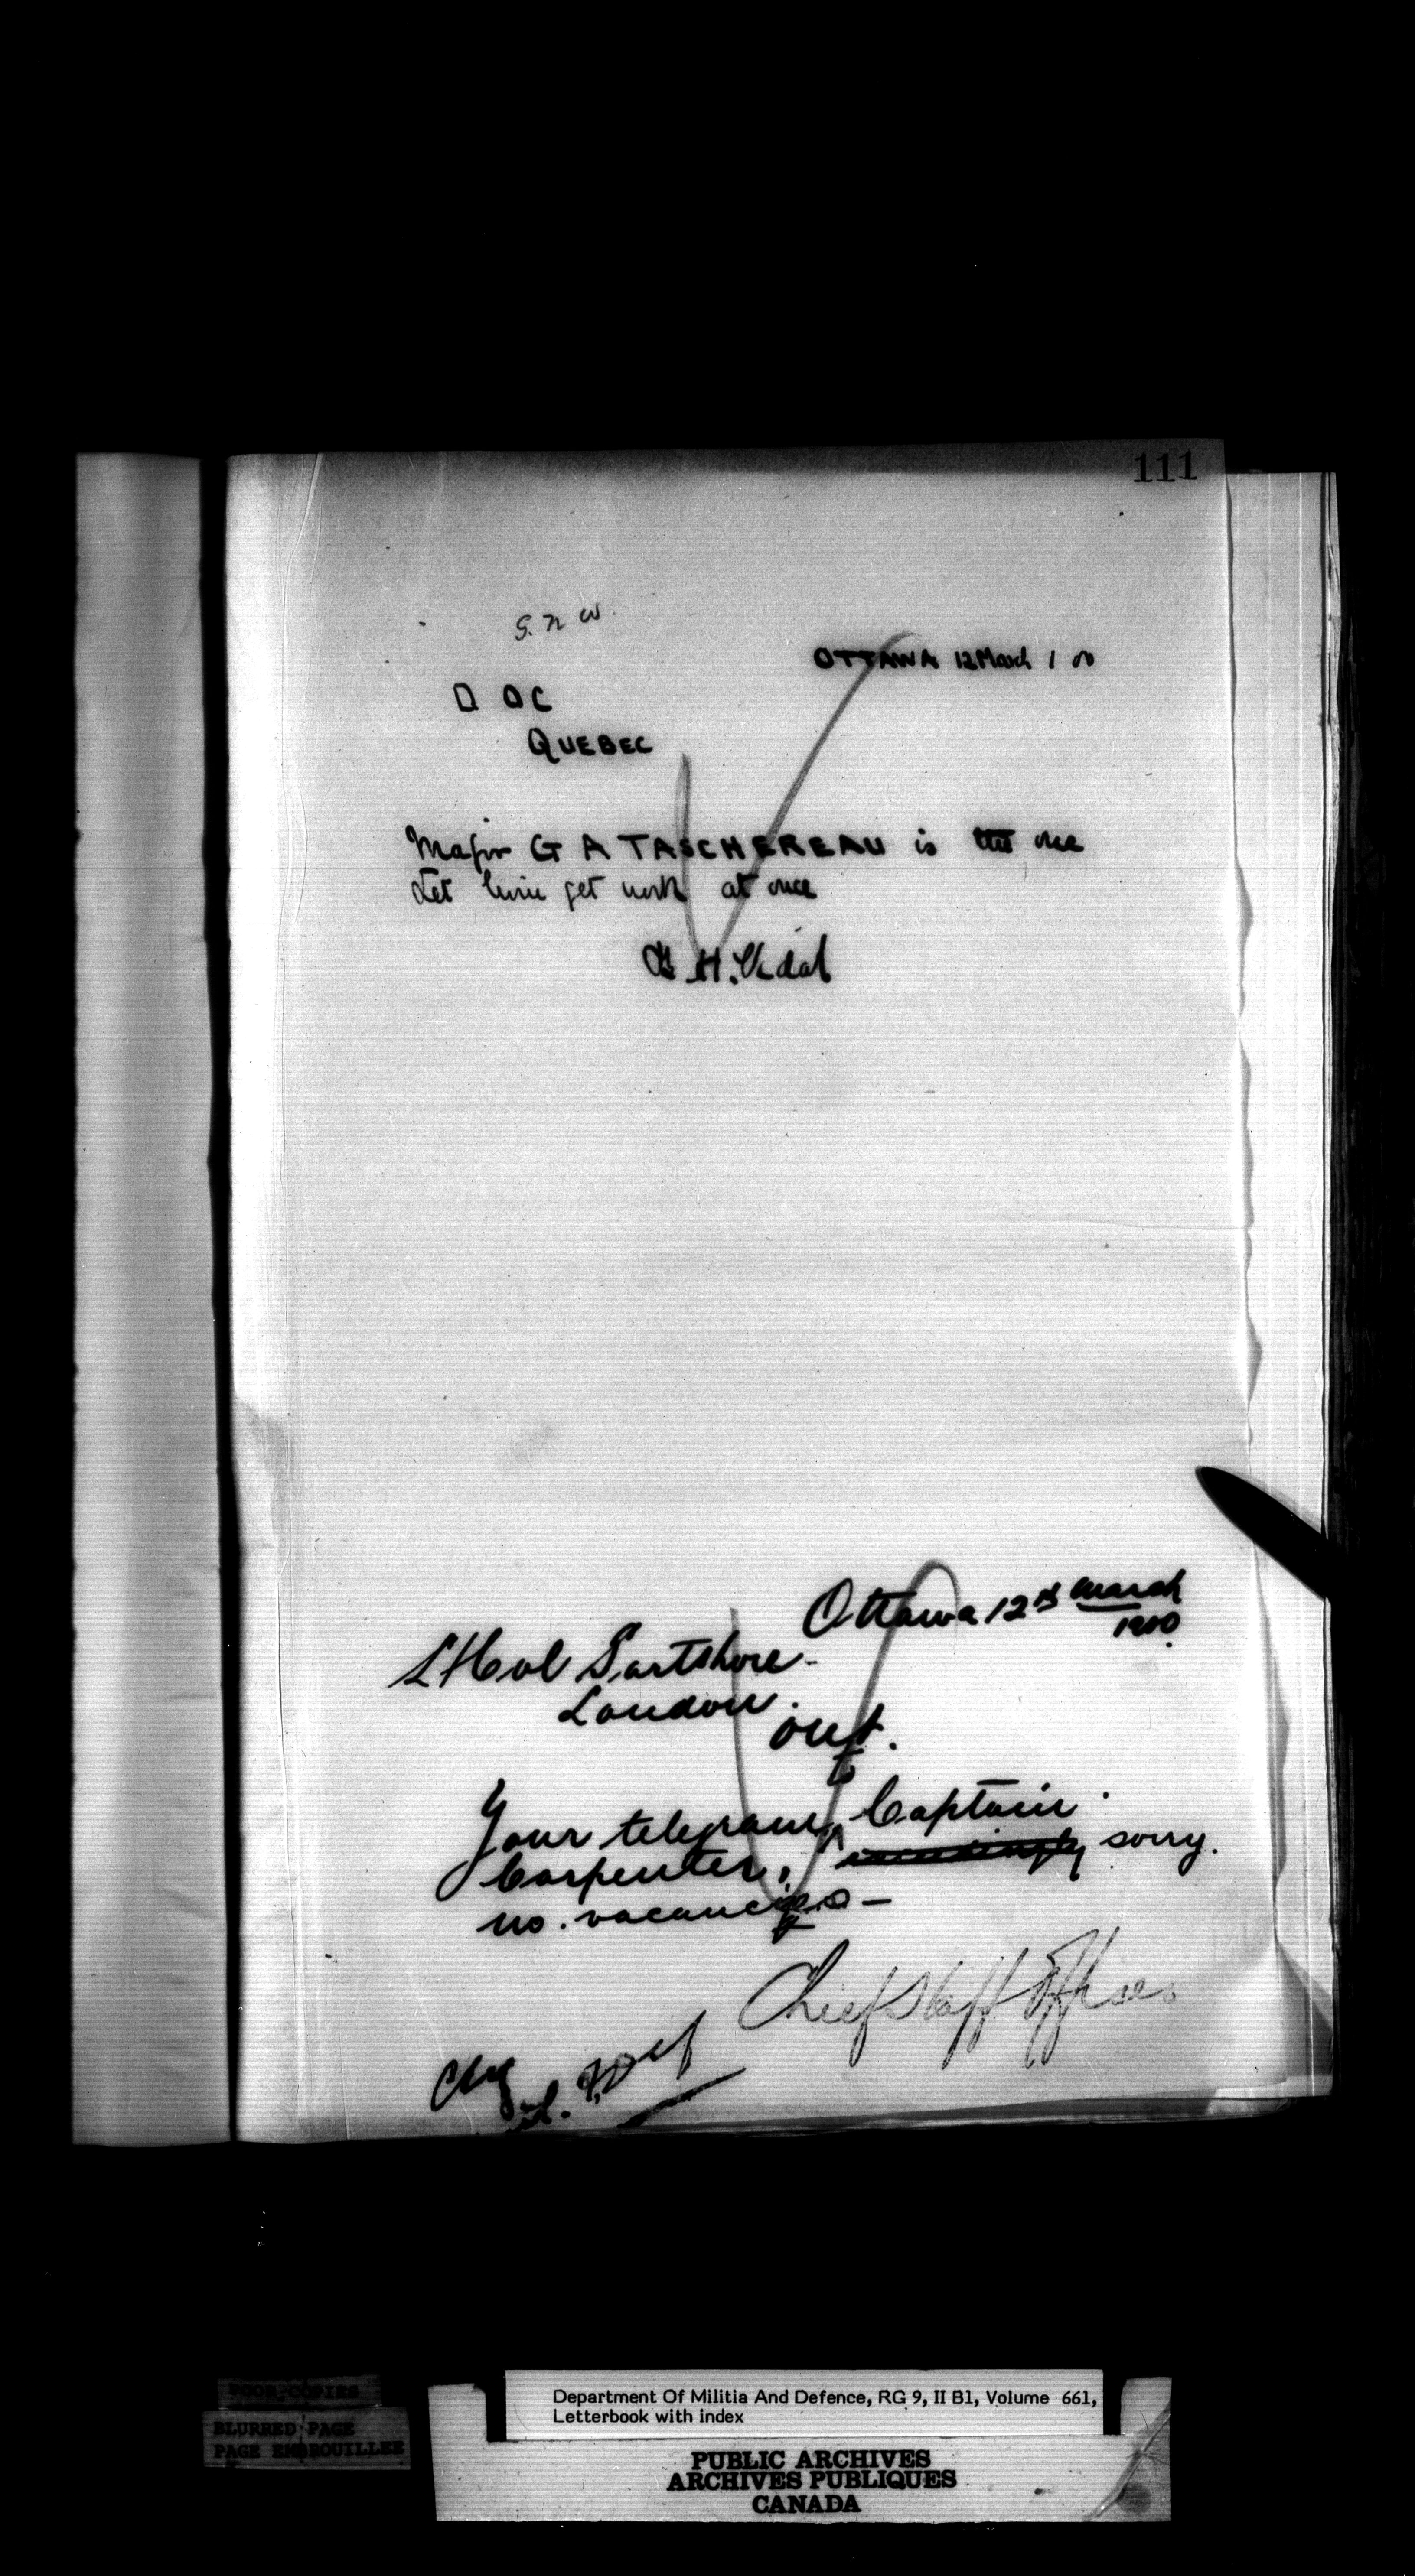 111
G. N W.
OTTAWA 12 March 1 00
D O C
QUEBEC
Major G A TASCHEREAU is the one
Let him get work at once
B H. Vidal
Ottawa 12th March
1900.
Lt Col Smith
London.
Ont.
Your telegram, Captain
Carpenter, exceedingly sorry.
no. vacancies—
Chief Staff Officer
Chg
Department Of Militia And Defence, RG 9, II B1, Volume 661,
Letterbook with index
POOR COPIES
BLURRED PAGE
PAGE EMBROUILLEE
PUBLIC ARCHIVES
ARCHIVES PUBLIQUES
CANADA